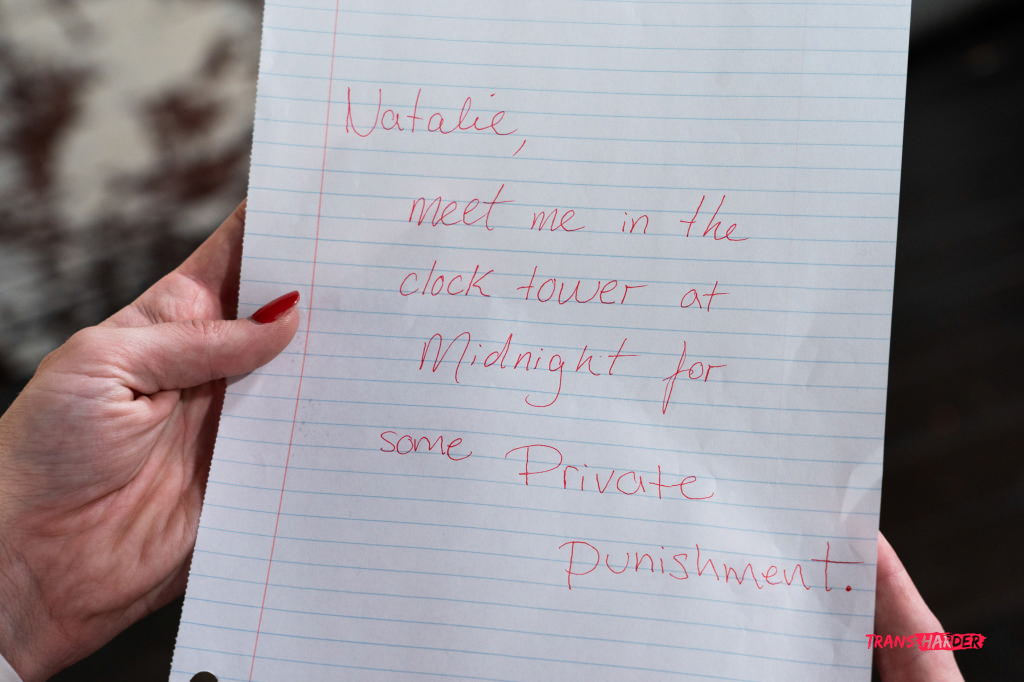 Natalie,
meet me in the
clock tower at
Midnight for
some Private
Punishment.
TRANS HARDER